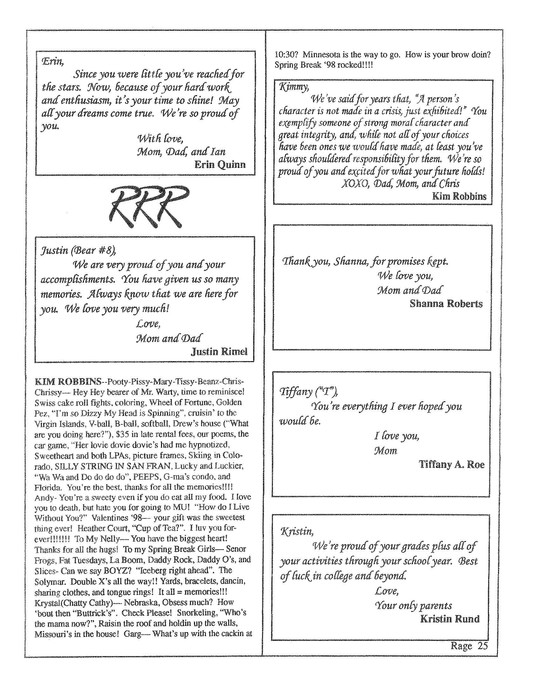 Erin,
Since you were little you've reached for
the stars. Now, because of your hard work
and enthusiasm, it's your time to shine! May
all your dreams come true. We're so proud of
you.
With love,
Mom, Dad, and Ian
Erin Quinn
RRR
Justin (Bear #8),
We are very proud of you and your
accomplishments. You have given us so many
memories. Always know that we are here for
you. We love you very much!
Love,
Mom and Dad
Justin Rimel
KIM ROBBINS--Pooty-Pissy-Mary-Tissy-Beanz-Chris-
Chrissy— Hey Hey bearer of Mr. Warty, time to reminisce!
Swiss cake roll fights, coloring, Wheel of Fortune, Golden
Pez, "I'm so Dizzy My Head is Spinning", cruisin' to the
Virgin Islands, V-ball, B-ball, softball, Drew's house ("What
are you doing here?"), $35 in late rental fees, our poems, the
car game, "Her lovie dovie dovie's had me hypnotized,
Sweetheart and both LPAs, picture frames, Skiing in Colo-
rado, SILLY STRING IN SAN FRAN, Lucky and Luckier,
"Wa Wa and Do do do do", PEEPS, G-ma's condo, and
Florida. You're the best, thanks for all the memories!!!!
Andy- You're a sweety even if you do eat all my food. I love
you to death, but hate you for going to MU! "How do I Live
Without You?" Valentines '98— your gift was the sweetest
thing ever! Heather Court, "Cup of Tea?". I luv you for-
ever!!!!!!! To My Nelly— You have the biggest heart!
Thanks for all the hugs! To my Spring Break Girls— Senor
Frogs, Fat Tuesdays, La Boom, Daddy Rock, Daddy O's, and
Slices- Can we say BOYZ? "Iceberg right ahead". The
Solymar. Double X's all the way!! Yards, bracelets, dancin,
sharing clothes, and tongue rings! It all = memories!!!
Krystal(Chatty Cathy)— Nebraska, Obsess much? How
'bout then "Buttrick's". Check Please! Snorkeling, "Who's
the mama now?", Raisin the roof and holdin up the walls,
Missouri's in the house! Garg— What's up with the cackin at
10:30? Minnesota is the way to go. How is your brow doin?
Spring Break '98 rocked!!!!
Kimmy,
We've said for years that, "A person's
character is not made in a crisis, just exhibited!" You
exemplify someone of strong moral character and
great integrity, and, while not all of your choices
have been ones we would have made, at least you've
always shouldered responsibility for them. We're so
proud of you and excited for what your future holds!
XOXO, Dad, Mom, and Chris
Kim Robbins
Thank you, Shanna, for promises kept.
We love you,
Mom and Dad
Shanna Roberts
Tiffany ("T"),
You're everything I ever hoped you
would be.
I love you,
Mom
Tiffany A. Roe
Kristin,
We're proud of your grades plus all of
your activities through your school year. Best
of luck in college and beyond.
Love,
Your only parents
Kristin Rund
Rage 25